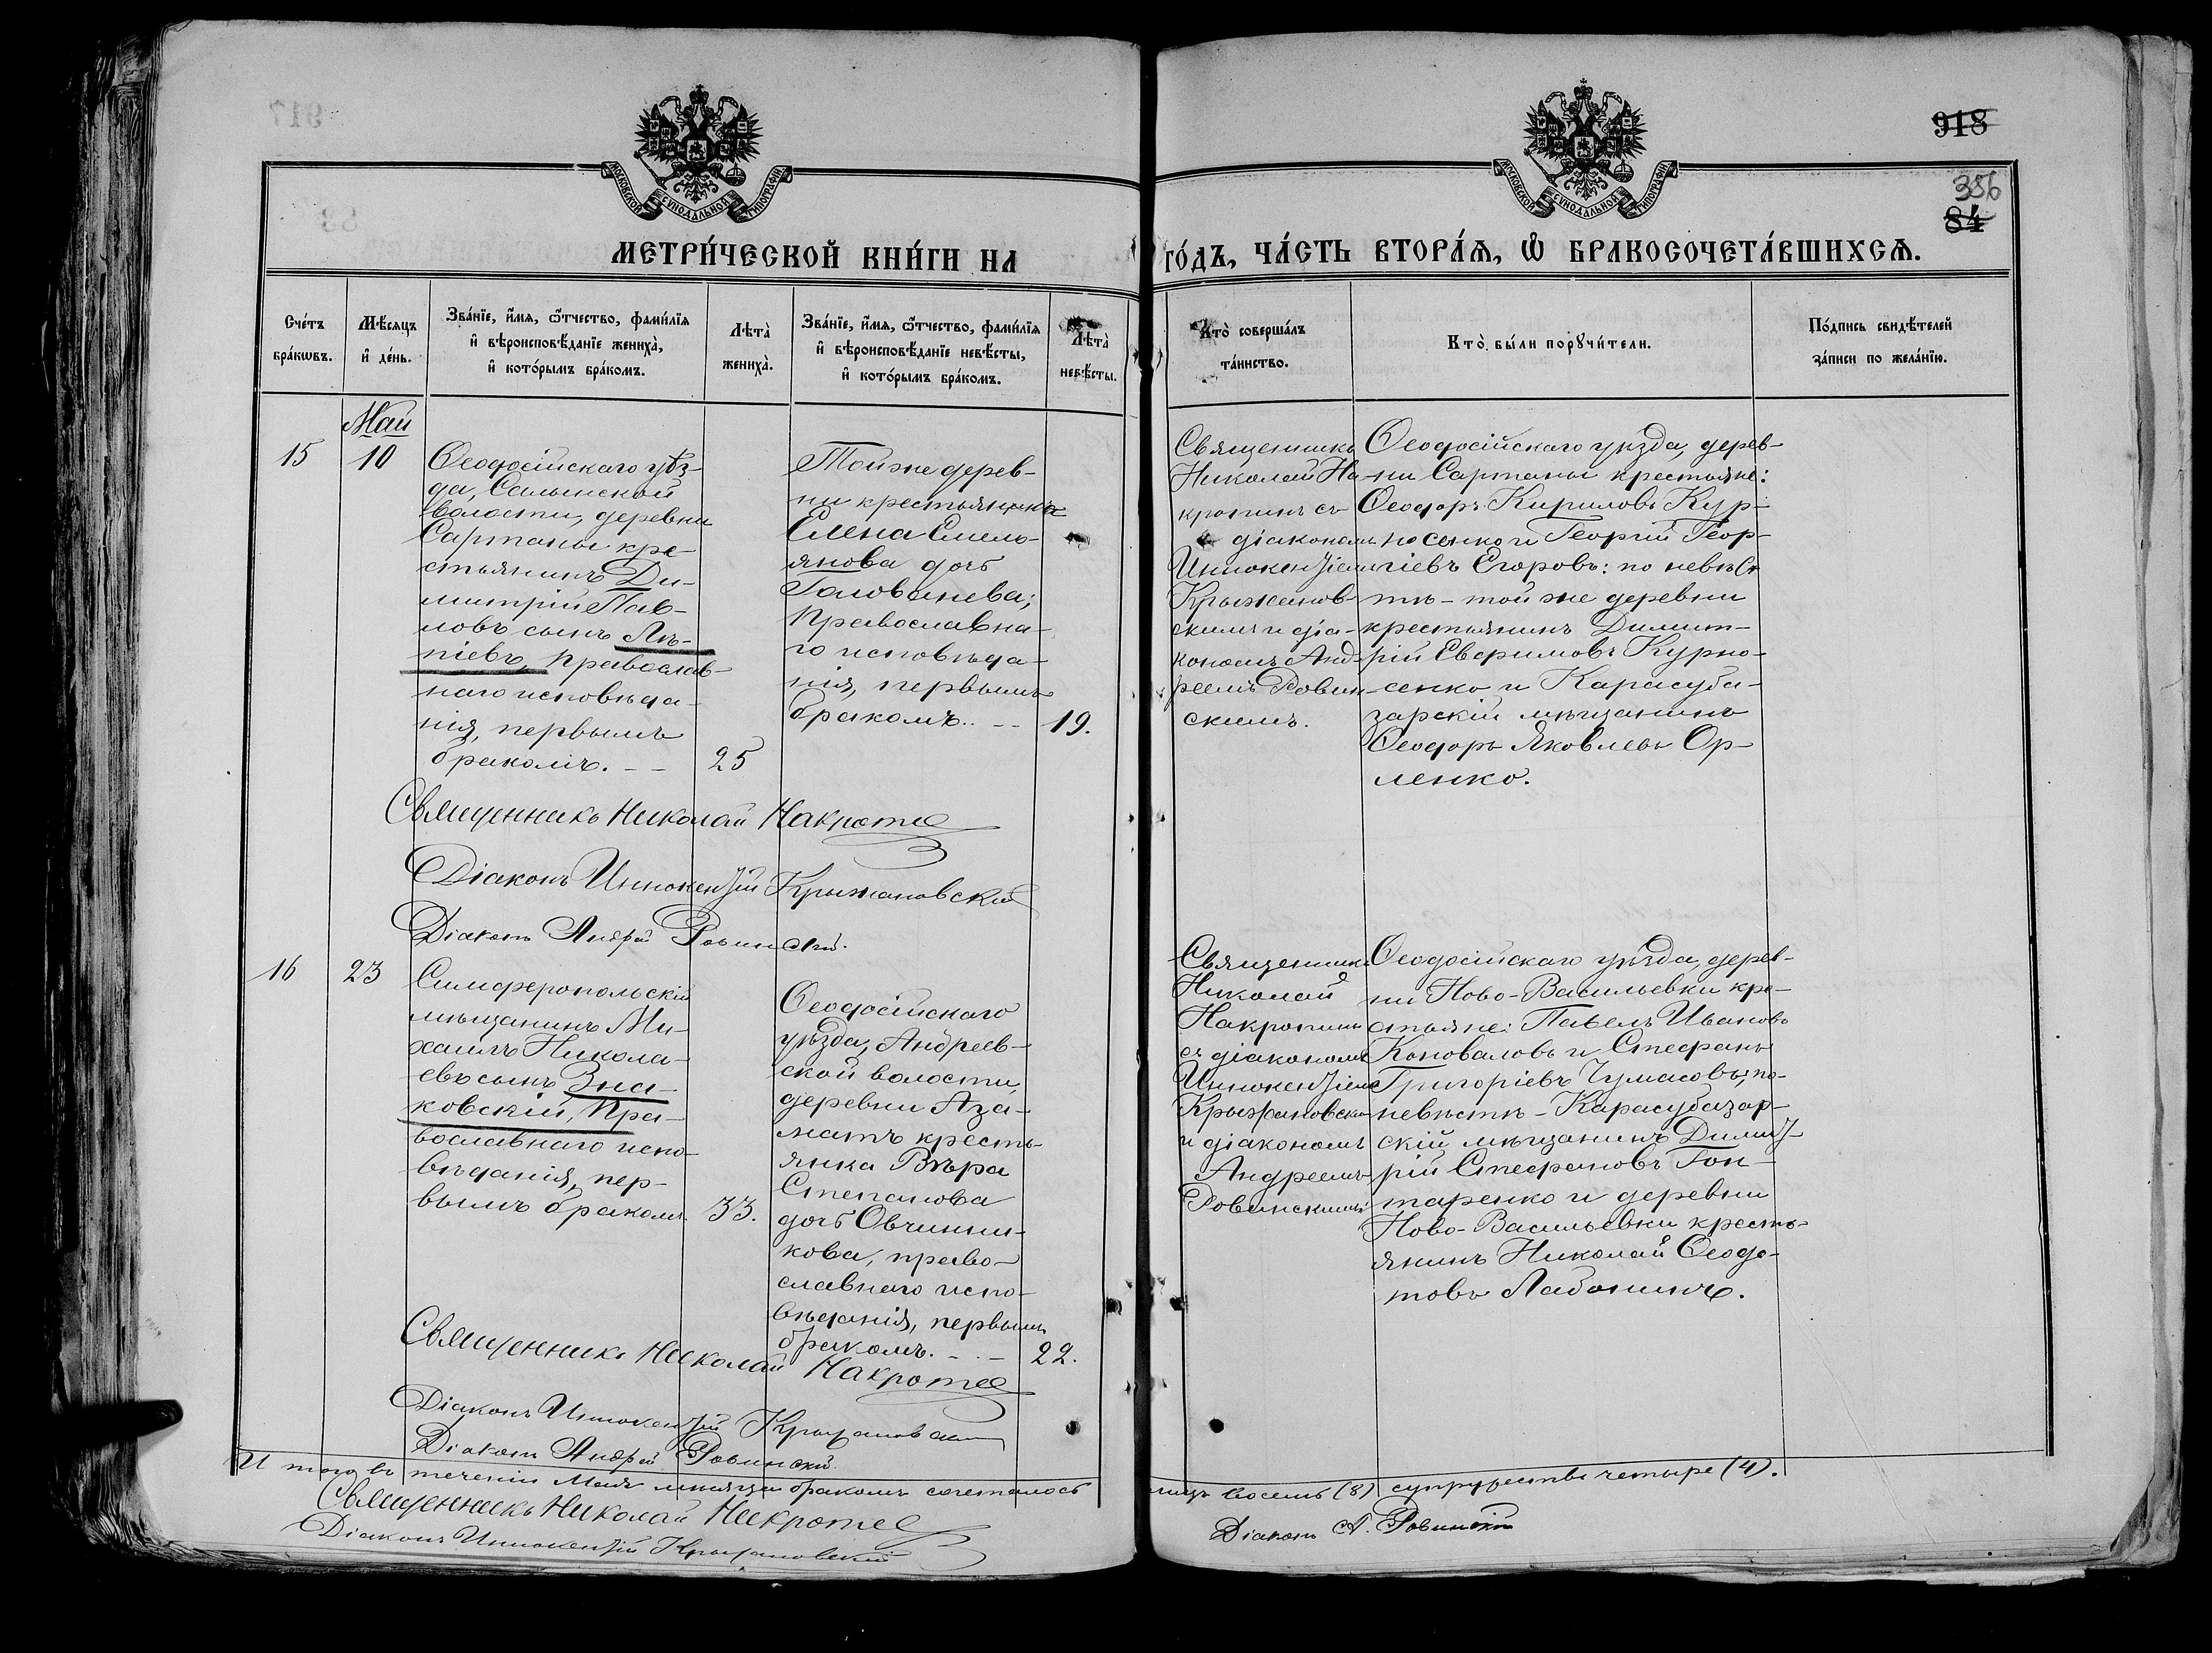 918
356
84
МОСКОВСКОЙ СѴНОДАЛЬНОЙ ТИПОГРАФІИ
МОСКОВСКОЙ СѴНОДАЛЬНОЙ ТИПОГРАФІИ
МЕТРИ́ЧЕСКОЙ КНИ́ГИ НА
ГО́ДЪ, ЧА́СТЬ ВТОРА́Ѧ, Ѡ БРАКОСОЧЕТА́ВШИХСѦ.
Сче́тъ
бра́кѡвъ.
Мѣ́сяцъ
и҆ де́нь.
Зва́нїе, и҆́мя, ѻ҆́тчество, фами́лїя
и҆ вѣроисповѣ́данїе жениха̀,
и҆ кото́рымъ бра́комъ.
Лѣта̀
жениха̀.
Зва́нїе, и҆́мя, ѻ҆́тчество, фами́лїя
и҆ вѣроисповѣ́данїе невѣ́сты,
и҆ кото́рымъ бра́комъ.
Лѣта̀
невѣ́сты.
Кто̀ соверша́лъ
та́инство.
Кто̀ бы́ли порꙋчи́тели.
По́дпись свидѣ́телей
за́писи по жела́нїю.
Май
15
10
Ѳеодосійскаго уѣз-
да, Салынской
волости, деревни
Сартаны кре-
стьянинъ Ди-
митрій Пав-
ловъ сынъ Лѣ-
піевъ, православ-
наго исповѣда-
нія, первымъ
бракомъ. - -
25
Той же дерев-
ни крестьянка
Елена Емель-
янова дочь
Голованева;
Православна-
го исповѣда-
нія, первымъ
бракомъ. - -
19.
Священникъ
Николай На-
кропинъ съ
діакономъ
Иннокентіемъ
Крыжанов-
скимъ и діа-
кономъ Анд-
реемъ Ровин-
скимъ.
Ѳеодосійскаго уѣзда, дерев-
ни Сартаны крестьяне:
Ѳеодоръ Кириловъ Кур-
носенко и Георгій Геор-
гіевъ Егоровъ: по невѣс-
тѣ - той же деревни
крестьянинъ Димит-
рій Евфимовъ Курно-
сенко и Карасуба-
зарскій мѣщанинъ
Ѳеодоръ Яковлевъ Ор-
ленко.
Священникъ Николай
Діаконъ Иннокентій Крыжановскій
Діаконъ Андрей Ровинскій.
16
23
Симферопольскій
мѣщанинъ Ми-
хаилъ Никола-
евъ сынъ Зна-
ковскій, Пра-
вославнаго испо-
вѣданія, пер-
вымъ бракомъ.
33.
Ѳеодосійскаго
уѣзда, Андреев-
ской волости,
деревни Аза-
матъ кресть-
янка Вѣра
Степанова
дочь Овчинни-
кова, право-
славнаго испо-
вѣданія, первымъ
бракомъ. - -
22.
Священникъ
Николай
Накропинъ
съ діакономъ
Иннокентіемъ
Крыжановскимъ
и діакономъ
Андреемъ
Ровинскимъ
Ѳеодосійскаго уѣзда, дерев-
ни Ново-Васильевки кре-
стьяне: Павелъ Ивановъ
Коноваловъ и Стефанъ
Григоріевъ Чумасовъ; по-
невѣстѣ - Карасубазар-
скій мѣщанинъ Димит-
рій Стефановъ Гон-
таренко и деревни
Ново-Васильевки кресть-
янинъ Николай Ѳеодо-
товъ Лабонинъ.
Священникъ Николай
Діаконъ Иннокентій Крыжановскій
Діаконъ Андрей Ровинскій.
И того въ теченіи Мая мѣсяца бракомъ сочеталось
лицъ восемь (8) супружествъ четыре (4).
Священникъ Николай
Діаконъ Иннокентій Крыжановскій
Діаконъ А. Ровинскій